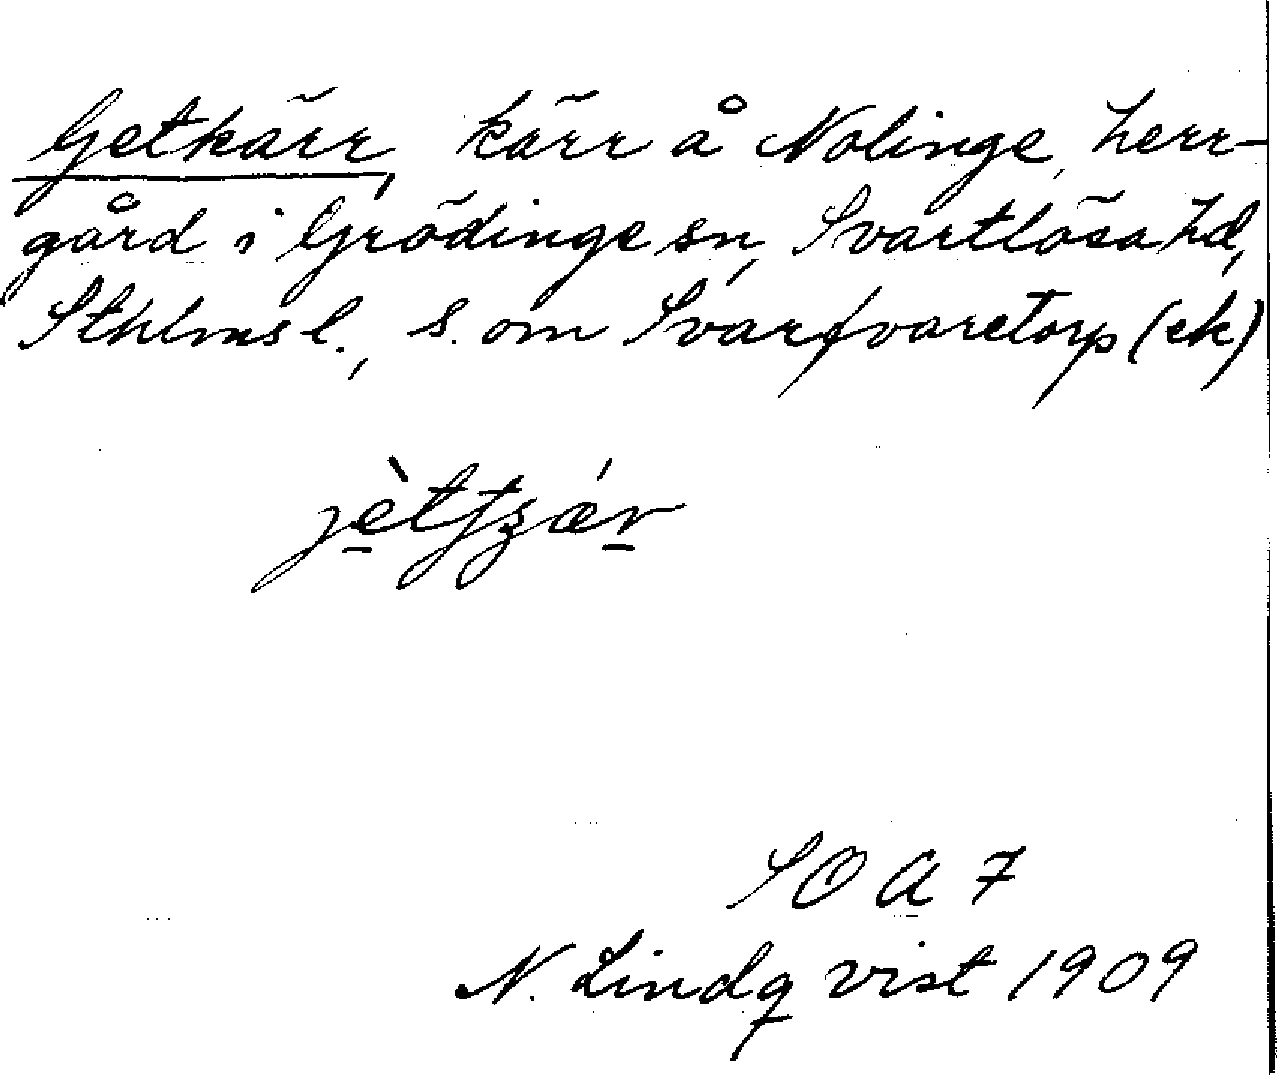 Getkärr, kärr å Nolinge, herr-
gård i Grödinge sn, Svartlösa hd,
Sthlms l., s. om Svarfvaretorp (ek)
SOA 7
N. Lindqvist 1909